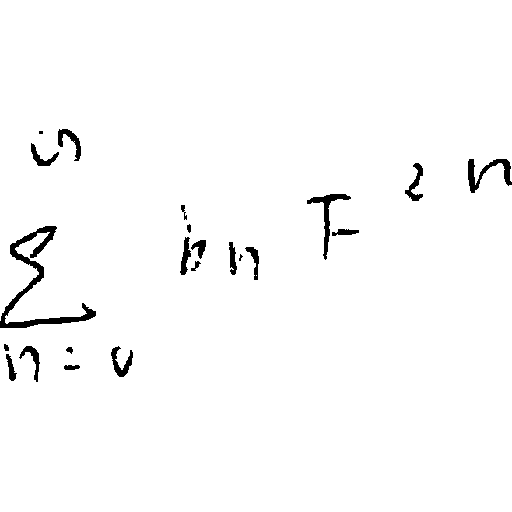 \sum_{n=0}^{\infty} b_n F^{2n}